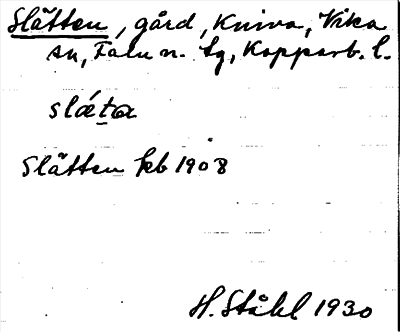 Slätten, gård, Kniva, Vika
sn, Falu n. tg, Kopparb. l.
slǽta
Slätten kb 1908
H. Ståhl 1930